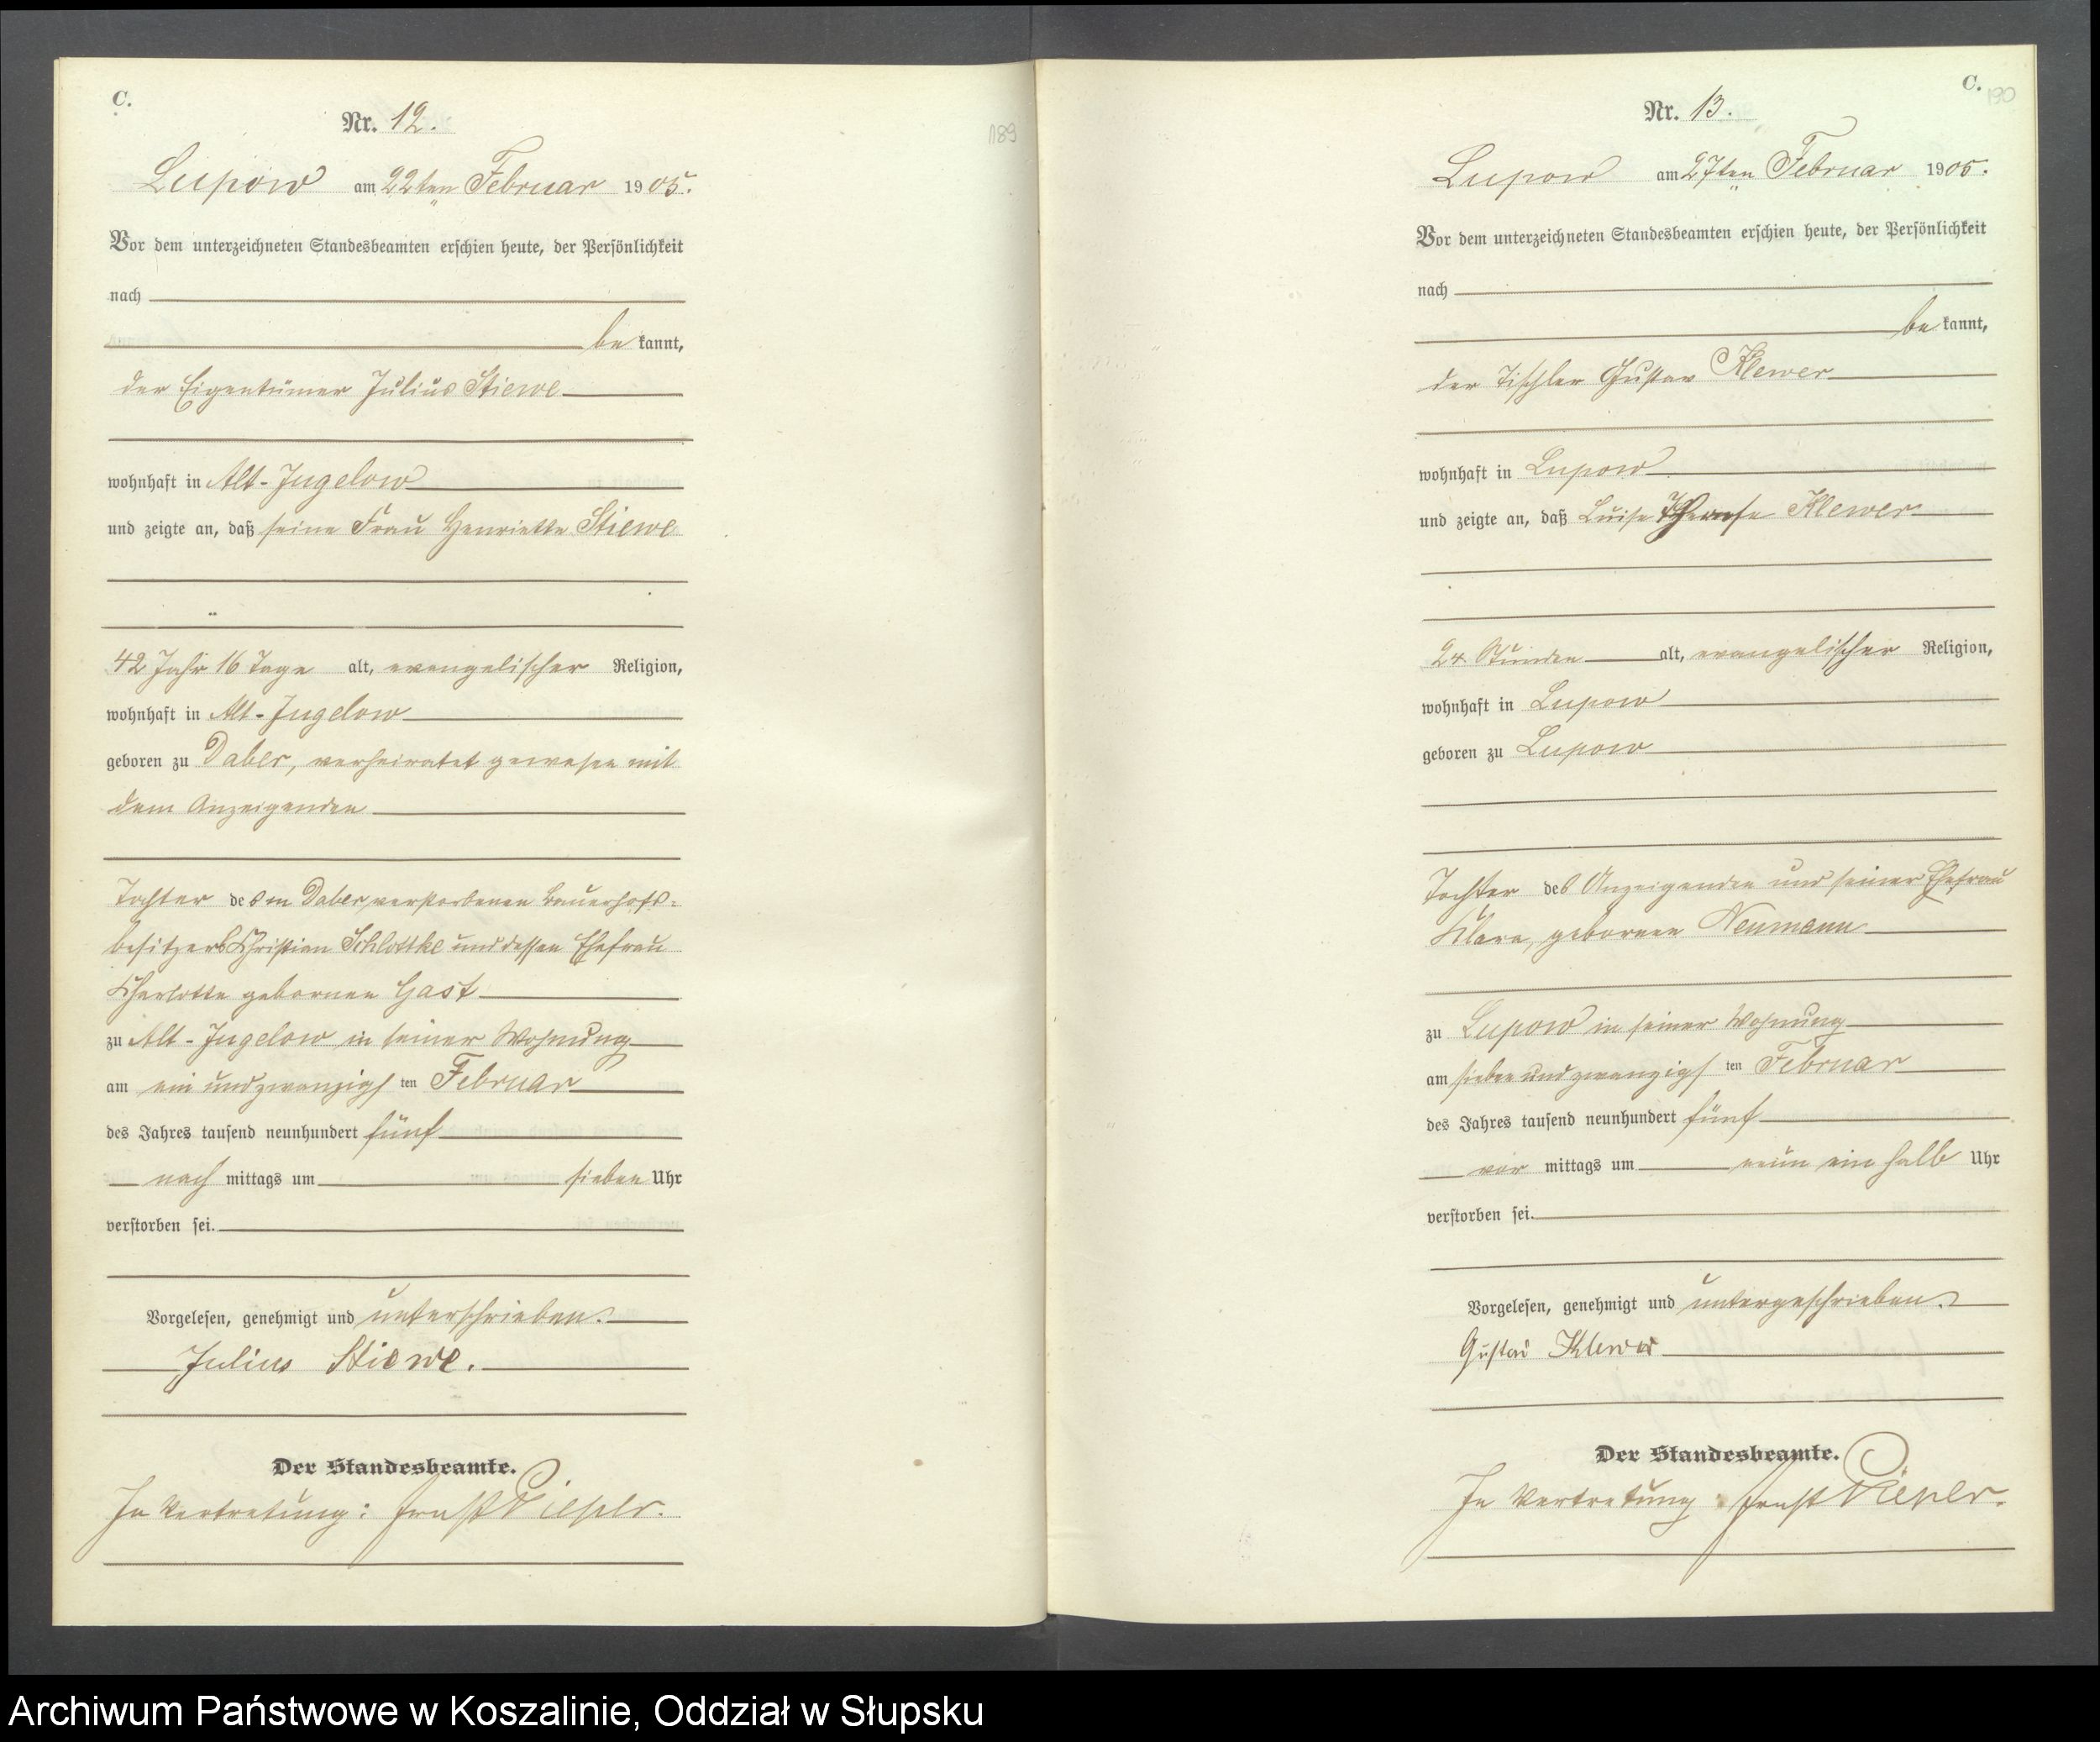 C.
Nr. 12.
189
Lupow am 22ten Februar 1905.
Vor dem unterzeichneten Standesbeamten erschien heute, der Persönlichkeit
nach
be kannt,
der Eigentümer Julius Stiewe
wohnhaft in Alt-Jugelow
und zeigte an, daß seine Frau Henriette Stiewe
42 Jahr 16 Tage alt, evangelischer Religion,
wohnhaft in Alt-Jugelow
geboren zu Daber, verheiratet gewesen mit
dem Anzeigenden
Tochter des in Daber verstorbenen Bauerhofs=
besitzers Christian Schlottke und dessen Ehefrau
Charlotte gebornen Gast
zu Alt-Jugelow in seiner Wohnung
am ein und zwanzigs ten Februar
des Jahres tausend neunhundert fünf
nach mittags um sieben Uhr
verstorben sei.
Vorgelesen, genehmigt und unterschrieben.
Julius Stiewe.
Der Standesbeamte.
In Vertretung: Ernst Pieper.
C.
190
Nr. 13.
Lupow am 27ten Februar 1905.
Vor dem unterzeichneten Standesbeamten erschien heute, der Persönlichkeit
nach
be kannt,
der Tischler Gustav Klewer
wohnhaft in Lupow
und zeigte an, daß Luise Therese Klewer
24 Stunden alt, evangelischer Religion,
wohnhaft in Lupow
geboren zu Lupow
Tochter des Anzeigenden und seiner Ehefrau
Klara, gebornen Neumann
zu Lupow in seiner Wohnung
am sieben und zwanzigs ten Februar
des Jahres tausend neunhundert fünf
vor mittags um neun ein halb Uhr
verstorben sei.
Vorgelesen, genehmigt und untergeschrieben.
Gustav Klewer
Der Standesbeamte.
In Vertretung: Ernst Pieper.
Archiwum Państwowe w Koszalinie, Oddział w Słupsku